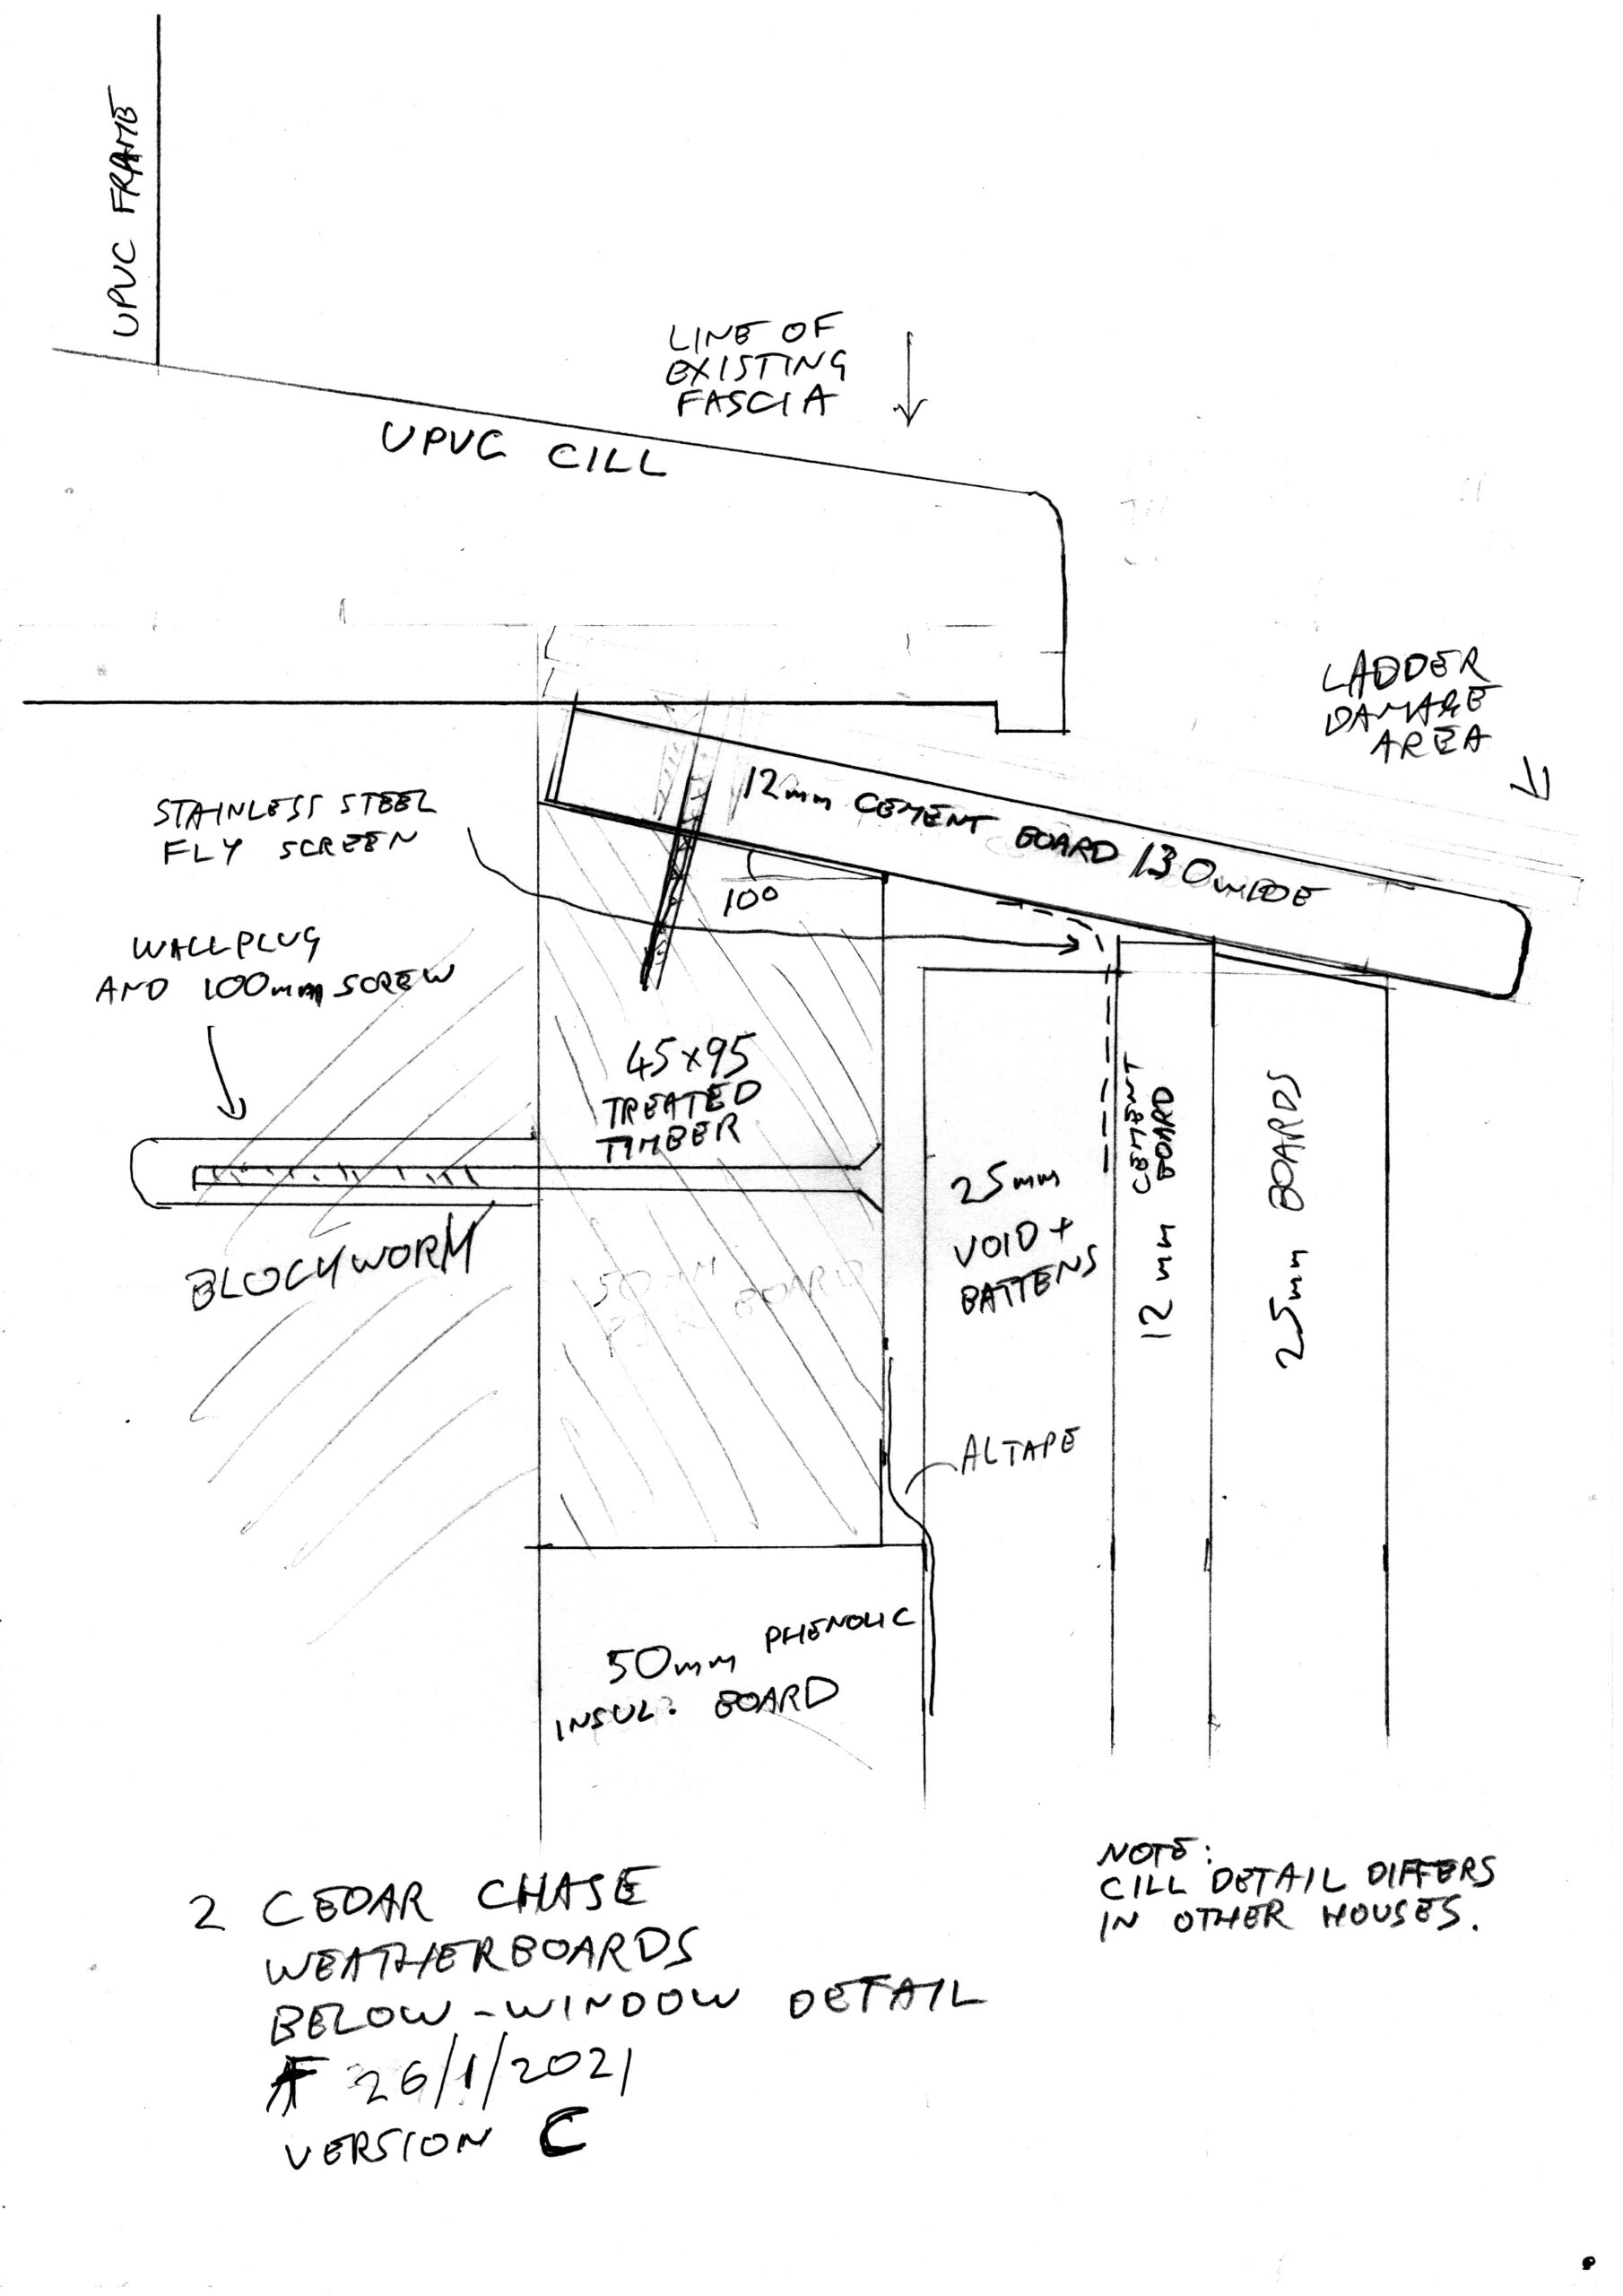 UPVC FRAME
LINE OF
EXISTING
FASCIA
UPVC CILL
LADDER
DAMAGE
AREA
12mm CEMENT BOARD 130 WIDE
STAINLESS STEEL
FLY SCREEN
10°
WALLPLUG
AND 100mm SCREW
45x95
TREATED
TIMBER
12 mm CEMENT
BOARD
25mm BOARDS
25mm
VOID +
BATTENS
BLOCKWORK
50mm
BOARD
AL TAPE
50mm PHENOLIC
INSUL. BOARD
NOTE:
CILL DETAIL DIFFERS
IN OTHER HOUSES.
2 CEDAR CHASE
WEATHERBOARDS
BELOW-WINDOW DETAIL
AF 26/1/2021
VERSION C